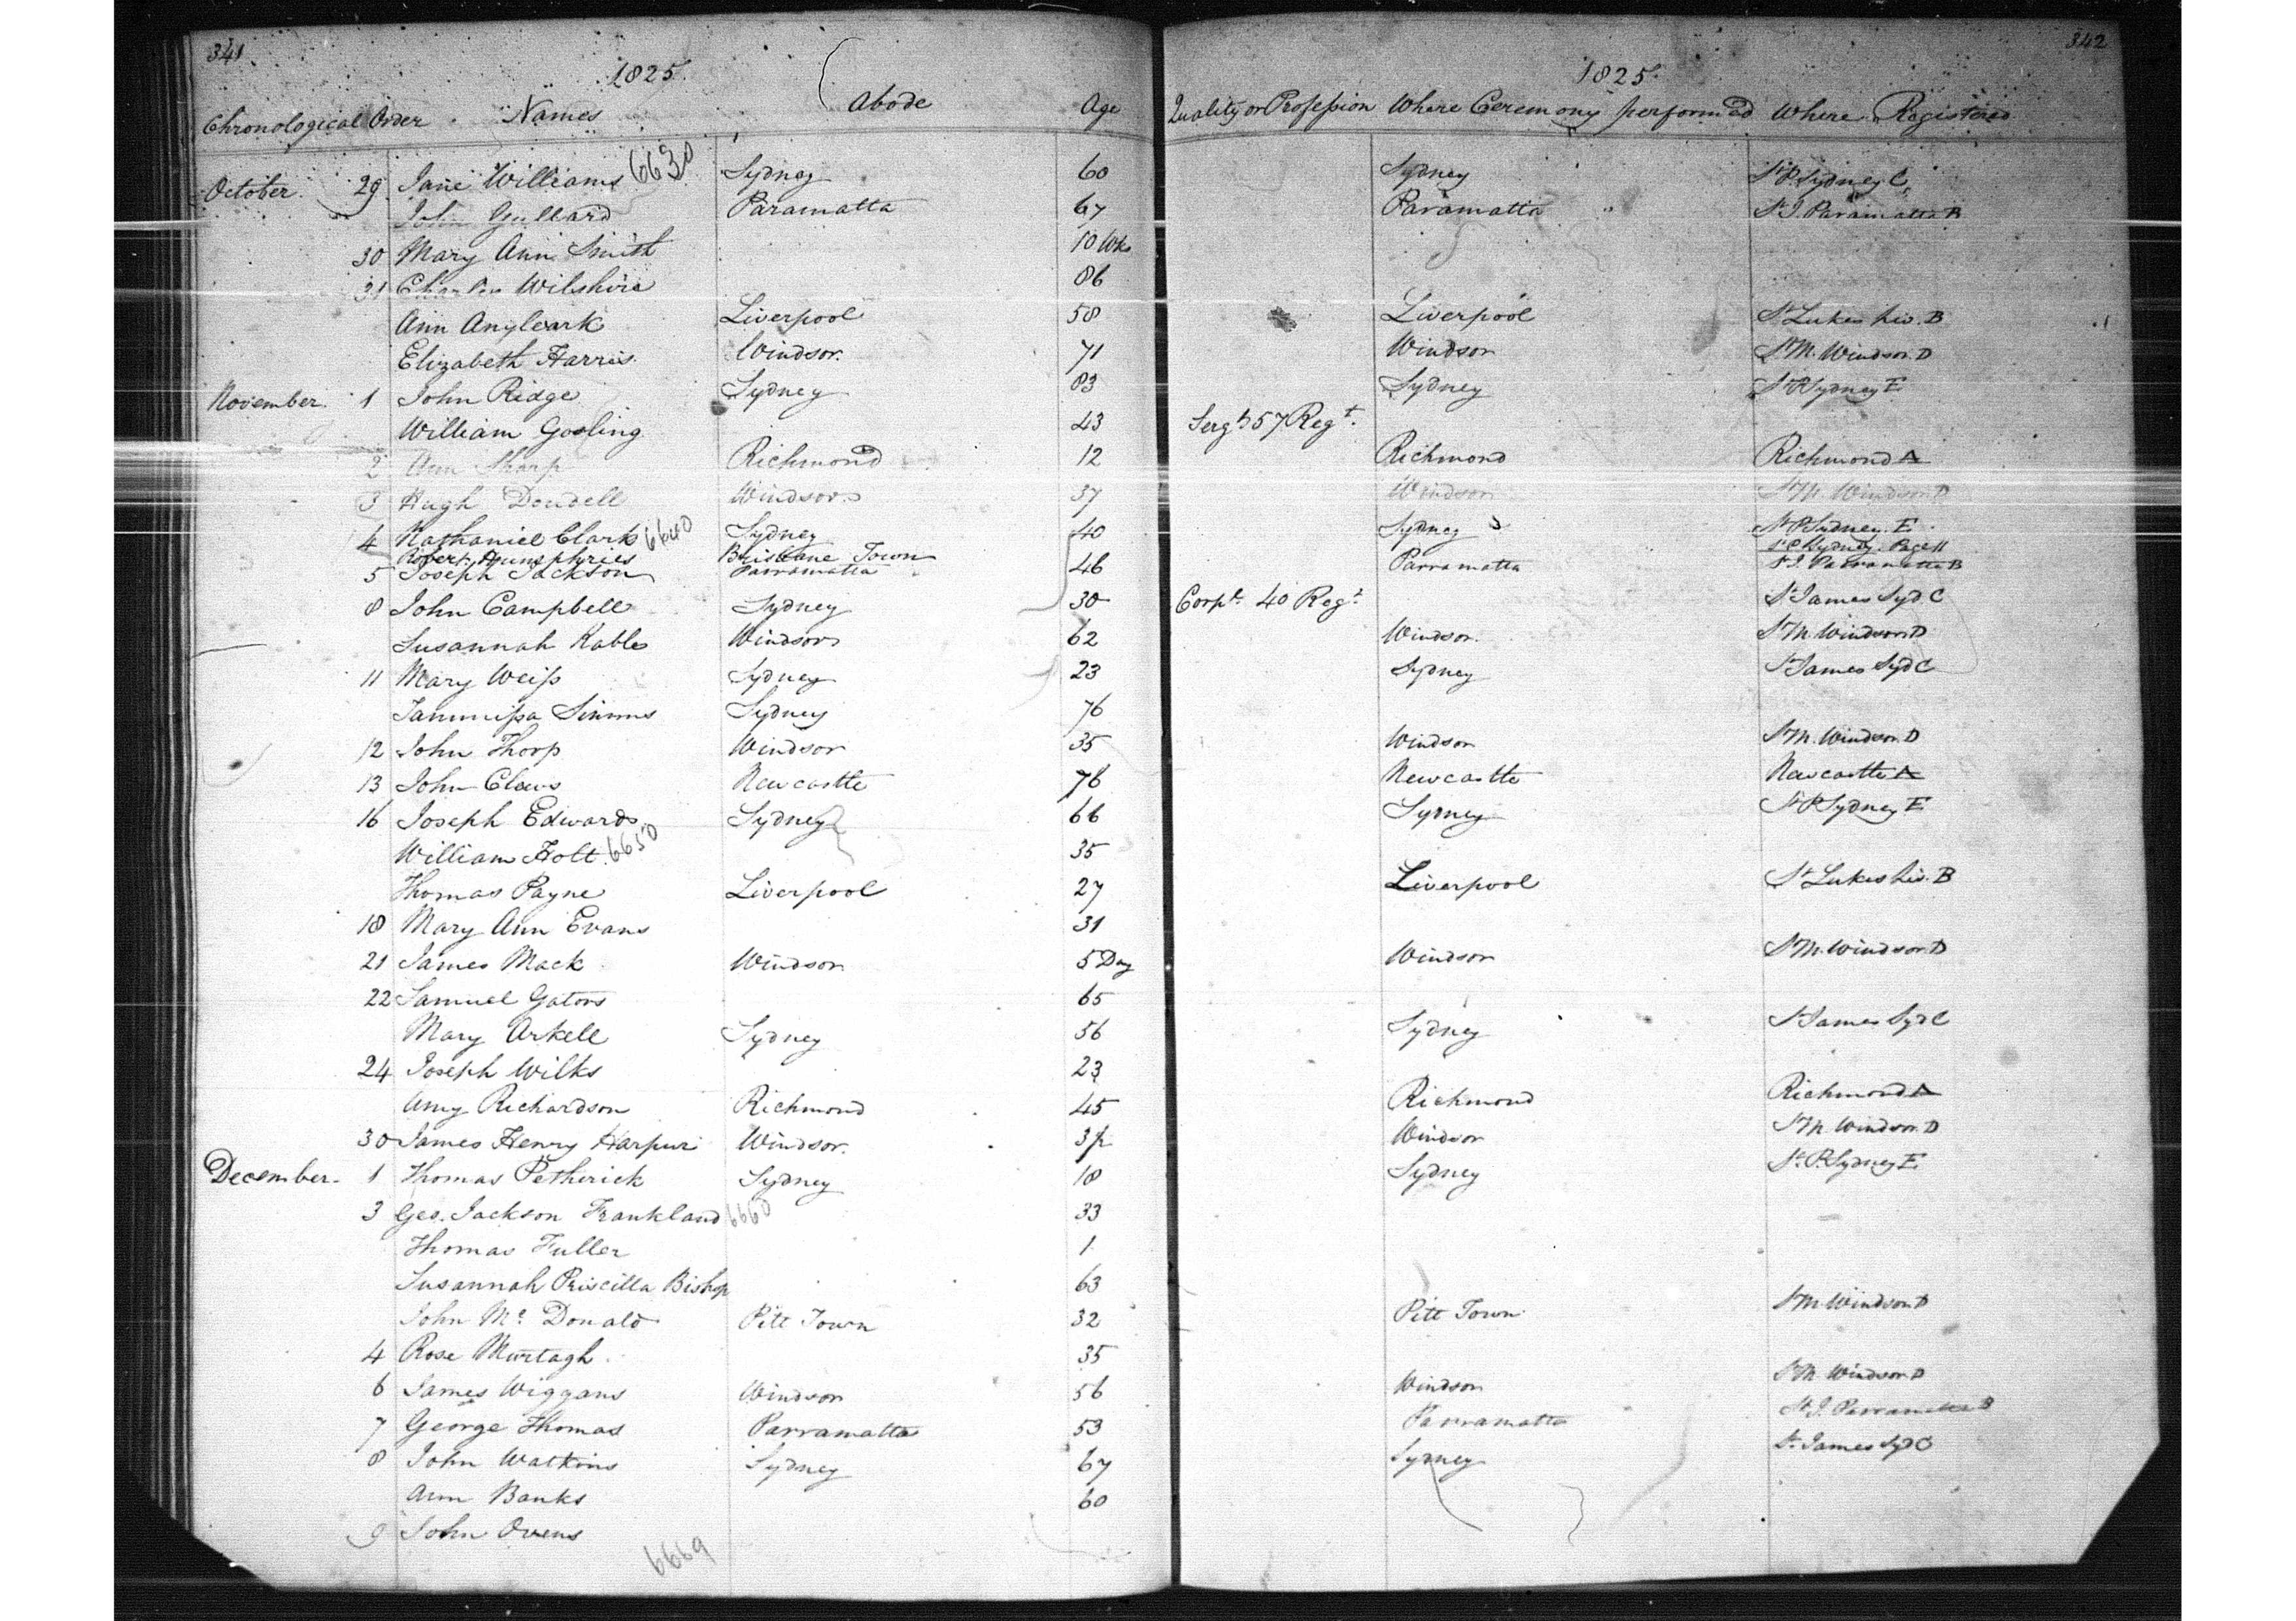 341
1825.
Chronological Order Names Abode Age
October 29 Jane Williams 6630 Sydney 60
John Gullard Paramatta 67
30 Mary Ann Smith 10 Wks
31 Charles Wilshire 86
Ann Angleark Liverpool 58
Elizabeth Harris Windsor. 71
November. 1 John Ridge Sydney 83
William Gosling 43
2 Ann Sharp Richmond 12
3 Hugh Dowdell Windsor 37
4 Nathaniel Clark 6640 Sydney 40
Robert Humphries Brisbane Town
5 Joseph Jackson Parramatta 46
8 John Campbell Sydney 30
Susannah Kable Windsor 62
11 Mary Weiss Sydney 23
Simms Sydney 76
12 John Thorp Windsor 35
13 John Claws Newcastle 76
16 Joseph Edwards Sydney 66
William Holt 6650 35
Thomas Payne Liverpool 27
18 Mary Ann Evans 31
21 James Mack Windsor 5 Day
22 Samuel Gators 65
Mary Arkell Sydney 56
24 Joseph Wilks 23
Amy Richardson Richmond 45
30 James Henry Harpur Windsor.
December 1 Thomas Petherick Sydney 18
3 Geo. Jackson Frankland 6660 33
Thomas Fuller 1
Susannah Priscilla Bishop 63
John Mc Donald Pitt Town 32
4 Rose Murtagh 35
6 James Wiggans Windsor 56
7 George Thomas Parramatta 53
8 John Watkins Sydney 67
Ann Banks 60
9 John Ovens
6669
342
1825.
Quality or Profession Where Ceremony perform'd Where Registered
Sydney St P. Sydney C
Paramatta St J. Paramatta B
Liverpool St Lukes Liv. B
Windsor St M. Windsor. D
Sydney St P Sydney E
Sergt 57 Regt.
Richmond Richmond A
Windsor St M. Windsor D
Sydney St P Sydney. E
St P Sydney. Page 11
Parramatta St J. Parramatta B
Corpl. 40 Regt St James Syd. C
Windsor. St M. Windsor D
Sydney St James Syd C
Windsor St M. Windsor. D
Newcastle Newcastle A
Sydney St P Sydney E
Liverpool St Lukes Liv. B
Windsor St M. Windsor. D
Sydney St James Syd C
Richmond Richmond A
Windsor St M. Windsor. D
Sydney St. P. Sydney E
Pitt Town St M. Windsor D
Windsor St M. Windsor D
Parramatta St J. Parramatta B
Sydney St. James Syd C